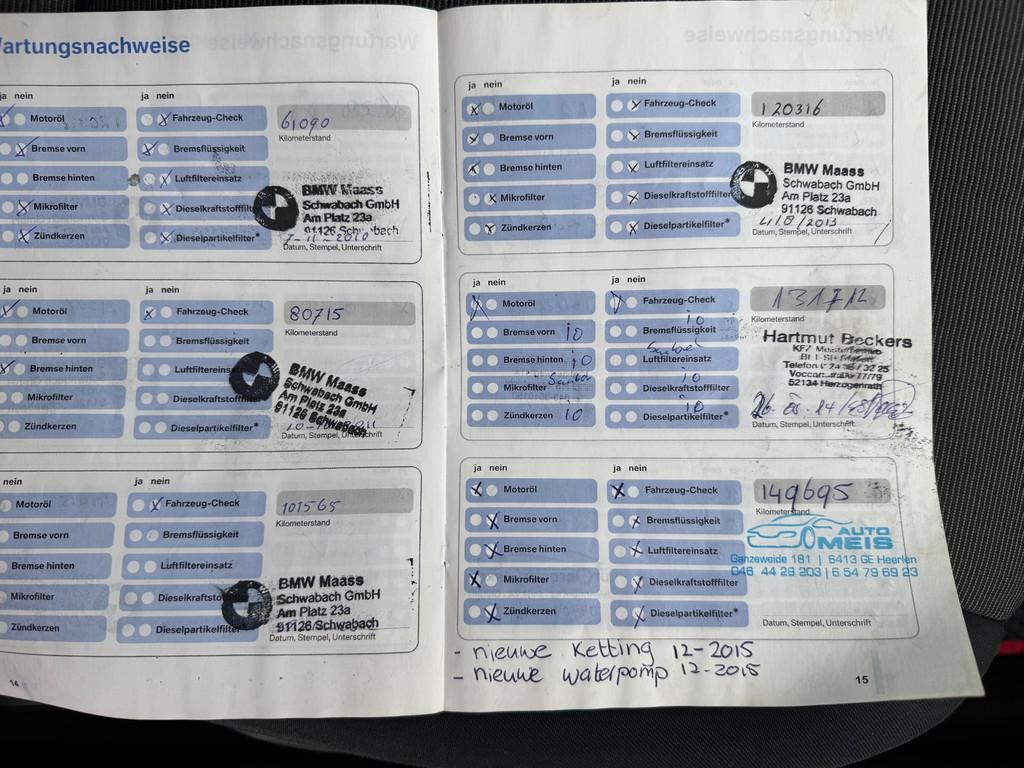 Wartungsnachweise
ja nein ja nein
Motoröl Fahrzeug-Check 61090
Kilometerstand
Bremse vorn Bremsflüssigkeit
Bremse hinten Luftfiltereinsatz
BMW Maass
Schwabach GmbH
Mikrofilter Dieselkraftstofffilt
Am Platz 23a
91126 Schwabach
Zündkerzen Dieselpartikelfilter*
7-11-2010
Datum, Stempel, Unterschrift
ja nein
Motoröl Fahrzeug-Check 80715
Kilometerstand
Bremse vorn Bremsflüssigkeit
Bremse hinten Luftfiltereins
BMW Maass
Schwabach GmbH
Mikrofilter Dieselkraftstofff
Am Platz 23a
91126 Schwabach
Zündkerzen Dieselpartikelfilter*
Datum, Stempel, Unterschrift
nein ja nein
Motoröl Fahrzeug-Check 101565
Kilometerstand
Bremse vorn Bremsflüssigkeit
Bremse hinten Luftfiltereinsatz
BMW Maass
Schwabach GmbH
Mikrofilter Dieselkraftsto
Am Platz 23a
91126 Schwabach
Zündkerzen Dieselpartikelfilter
Datum, Stempel, Unterschrift
14
ja nein ja nein
Motoröl Fahrzeug-Check 120316
Kilometerstand
Bremse vorn Bremsflüssigkeit
Bremse hinten Luftfiltereinsatz
BMW Maass
Schwabach GmbH
Mikrofilter Dieselkraftstofffilter
Am Platz 23a
91126 Schwabach
Zündkerzen Dieselpartikelfilter*
Datum, Stempel, Unterschrift
ja nein ja nein
Motoröl Fahrzeug-Check 131712
Kilometerstand
Bremse vorn io Bremsflüssigkeit io
Hartmut Beckers
Bremse hinten io Luftfiltereinsatz
Telefon
Mikrofilter Dieselkraftstofffilter io
52134 Herzogenrath
Zündkerzen io Dieselpartikelfilter* io
Datum, Stempel, Unterschrift
ja nein ja nein
Motoröl Fahrzeug-Check 149695
Kilometerstand
Bremse vorn Bremsflüssigkeit
AUTO
MEIS
Bremse hinten Luftfiltereinsatz
Ganzeweide 181 | 6413 GE Heerlen
Mikrofilter Dieselkraftstofffilter
Zündkerzen Dieselpartikelfilter*
Datum, Stempel, Unterschrift
- nieuwe Ketting 12-2015
- nieuwe waterpomp 12-2015
15